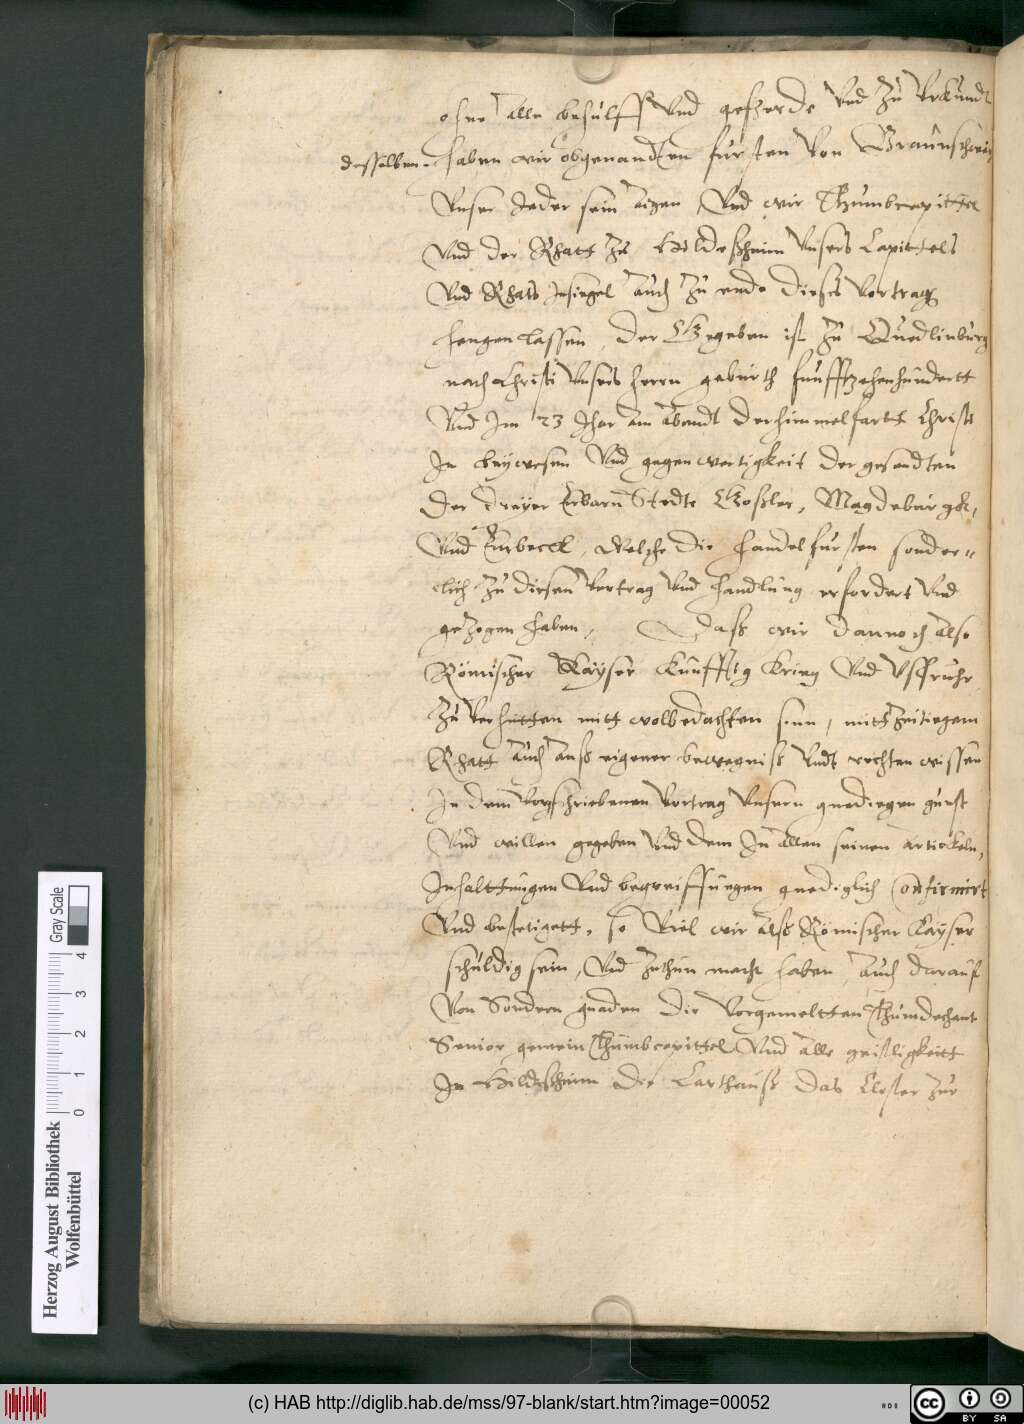 ohne alle behulff Vnd geferde Vnd Zu Vrkundt
desselben haben wir obgenandten fursten Von Braunschweig
Vnser Jeder sein eigen, Vnd wir Thumbcapittel
Vnd der Rhatt Zu Hildeßheim Vnsers Capittels
Vnd Rhats Insiegel auch Zu ende dieses Vertrag
hengen lassen, Der Gegeben ist Zu Quedlinburg
nach Christi Vnsers herrn geburth funfftzehenhundertt
Vnd Im 23 Jhar am Abendt der himmelfartt Christi
In beywesen Vnd gegenwertigkeit der gesandten
der dreyer Erbarn Stedte Goßler, Magdeburgk,
Vnd Einbeck, Welche die handelfursten sonder=
lich Zu diesen Vertrag Vnd handlung erfordert Vnd
gezogen haben, Daß wir dannoch also
Römischer Kayser kunfftig krieg Vnd Vffruhr
Zu Verhutten mitt wolbedachten sinn, mitt Zeitiegem
Rhatt auch auß eigener bewegniß Vndt rechten wissen
In dem Vorgschriebenen Vertrag Vnsern gnediegen gunst
Vnd willen gegeben Vnd dem In allen seinen artickeln,
Inhalttungen Vnd begreiffungen gnediglich Confirmirt
Vnd bestetigett, so Viel wir alß Römischer Kayser
schuldig sein, Vnd Zuthun macht haben, auch darauf
Von Sondern gnaden die Vorgemeltten Thumdechant
Senior gemein Thumbcapittel Vnd alle geistligkeitt
In Hildeßheim die Carthauß das Closter Zur
Herzog August Bibliothek
Wolfenbüttel
Gray Scale
0 1 2 3 4
(c) HAB http://diglib.hab.de/mss/97-blank/start.htm?image=00052
cc BY SA